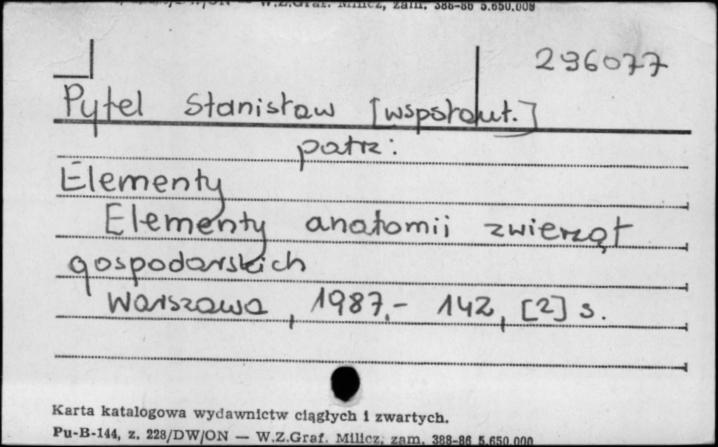 W.Z.Graf. Milicz, zam. 388-86 5.650.000
296077
Pytel Stanisław [współaut.]
patrz:
Elementy
Elementy anatomii zwierząt
gospodarskich
Warszawa, 1987.- 142, [2] s.
Karta katalogowa wydawnictw ciągłych i zwartych.
Pu-B-144, z. 228/DW/ON — W.Z.Graf. Milicz, zam. 388-86 5.650.000